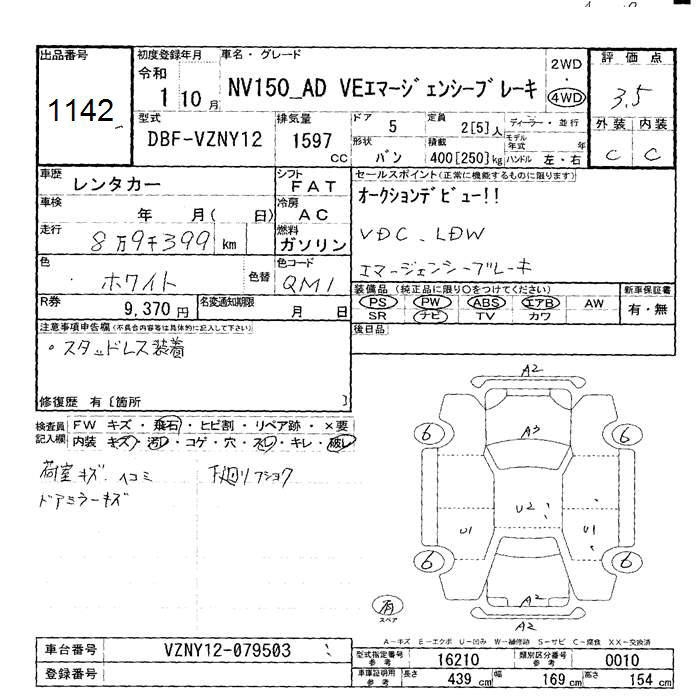 出品番号
1142
初度登録年月
令和
1 10 月
車名・グレード
NV150_AD VEエマージェンシーブレーキ
2WD
・
4WD
評価点
3.5
外装 内装
C C
型式
DBF-VZNY12
排気量
1597
cc
ドア
5
定員
2[5]人
ディーラー・並行
形状
バン
積載
400[250]kg
モデル年式 年
ハンドル 左・右
車歴
レンタカー
シフト
FAT
セールスポイント(正常に機能するものに限ります)
オークションデビュー!!
VDC、LDW
エマージェンシーブレーキ
車検
年 月( 日)
冷房
AC
走行
8万9千399 km
燃料
ガソリン
色
ホワイト
色替
色コード
QM1
装備品(純正品に限り○をつけてください)
PS PW ABS エアB AW
SR ナビ TV カワ
新車保証書
有・無
R券
9,370 円
名変通知期限
月 日
後日品
注意事項申告欄(不具合内容等は具体的に記入して下さい)
・スタッドレス装着
修復歴 有[箇所 ]
検査員記入欄
FW キズ・飛石・ヒビ割・リペア跡・×要
内装 キズ・汚レ・コゲ・穴・スレ・キレ・破レ
荷室キズ、ヘコミ
ドアミラーキズ
下廻リフショク
A2
6 A3 6
U2
U1 U1
6 6
A2
A2
有
スペア
A−キズ E−エクボ U−凹み W−補修跡 S−サビ C−腐食 XX−交換済
車台番号
VZNY12-079503
登録番号
型式指定番号
参考
16210
類別区分番号
参考
0010
車庫証明用
参考
長さ
439 cm
幅
169 cm
高さ
154 cm